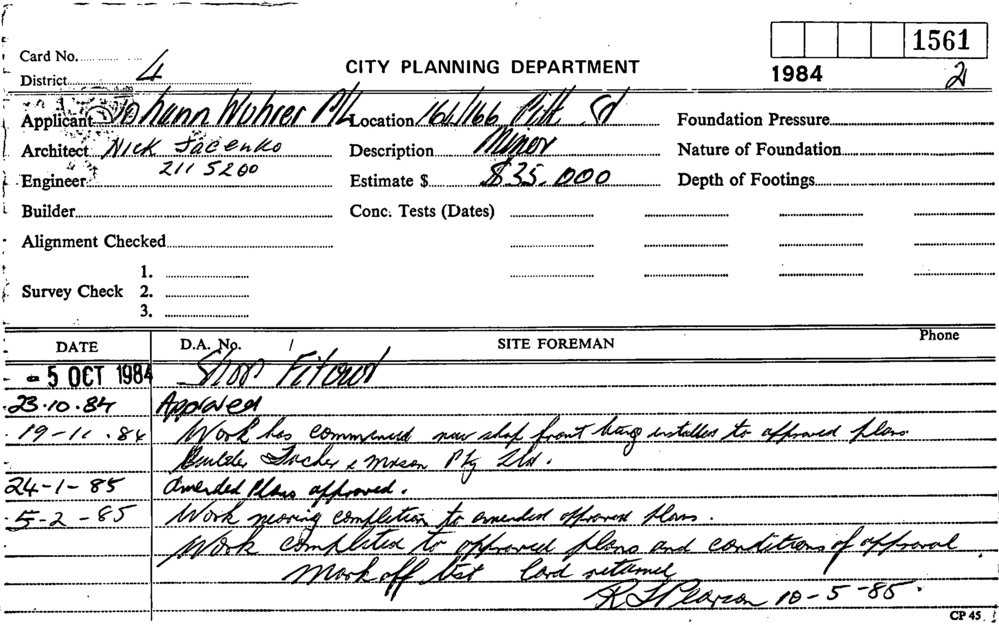 1561
Card No.
District 4
CITY PLANNING DEPARTMENT
1984 2
Applicant Johann Wohrer P/L Location 164/166 Pitt St Foundation Pressure
Architect Nick Jacenko Description Minor Nature of Foundation
Engineer 211 5200 Estimate $ $35.000 Depth of Footings
Builder Conc. Tests (Dates)
Alignment Checked
1.
Survey Check 2.
3.
DATE D.A. No. / SITE FOREMAN Phone
- 5 OCT 1984 Shop Fitout
23.10.84 Approved
19-11.84 Work has commenced new shop front being installed to approved plans
Builder & Mason Pty Ltd.
24-1-85 Amended Plans approved.
5-2-85 Work nearing completion to amended approved plans.
Work completed to approved plans and conditions of approval
Mark off list Card returned
R J Pearson 10-5-85.
CP 45